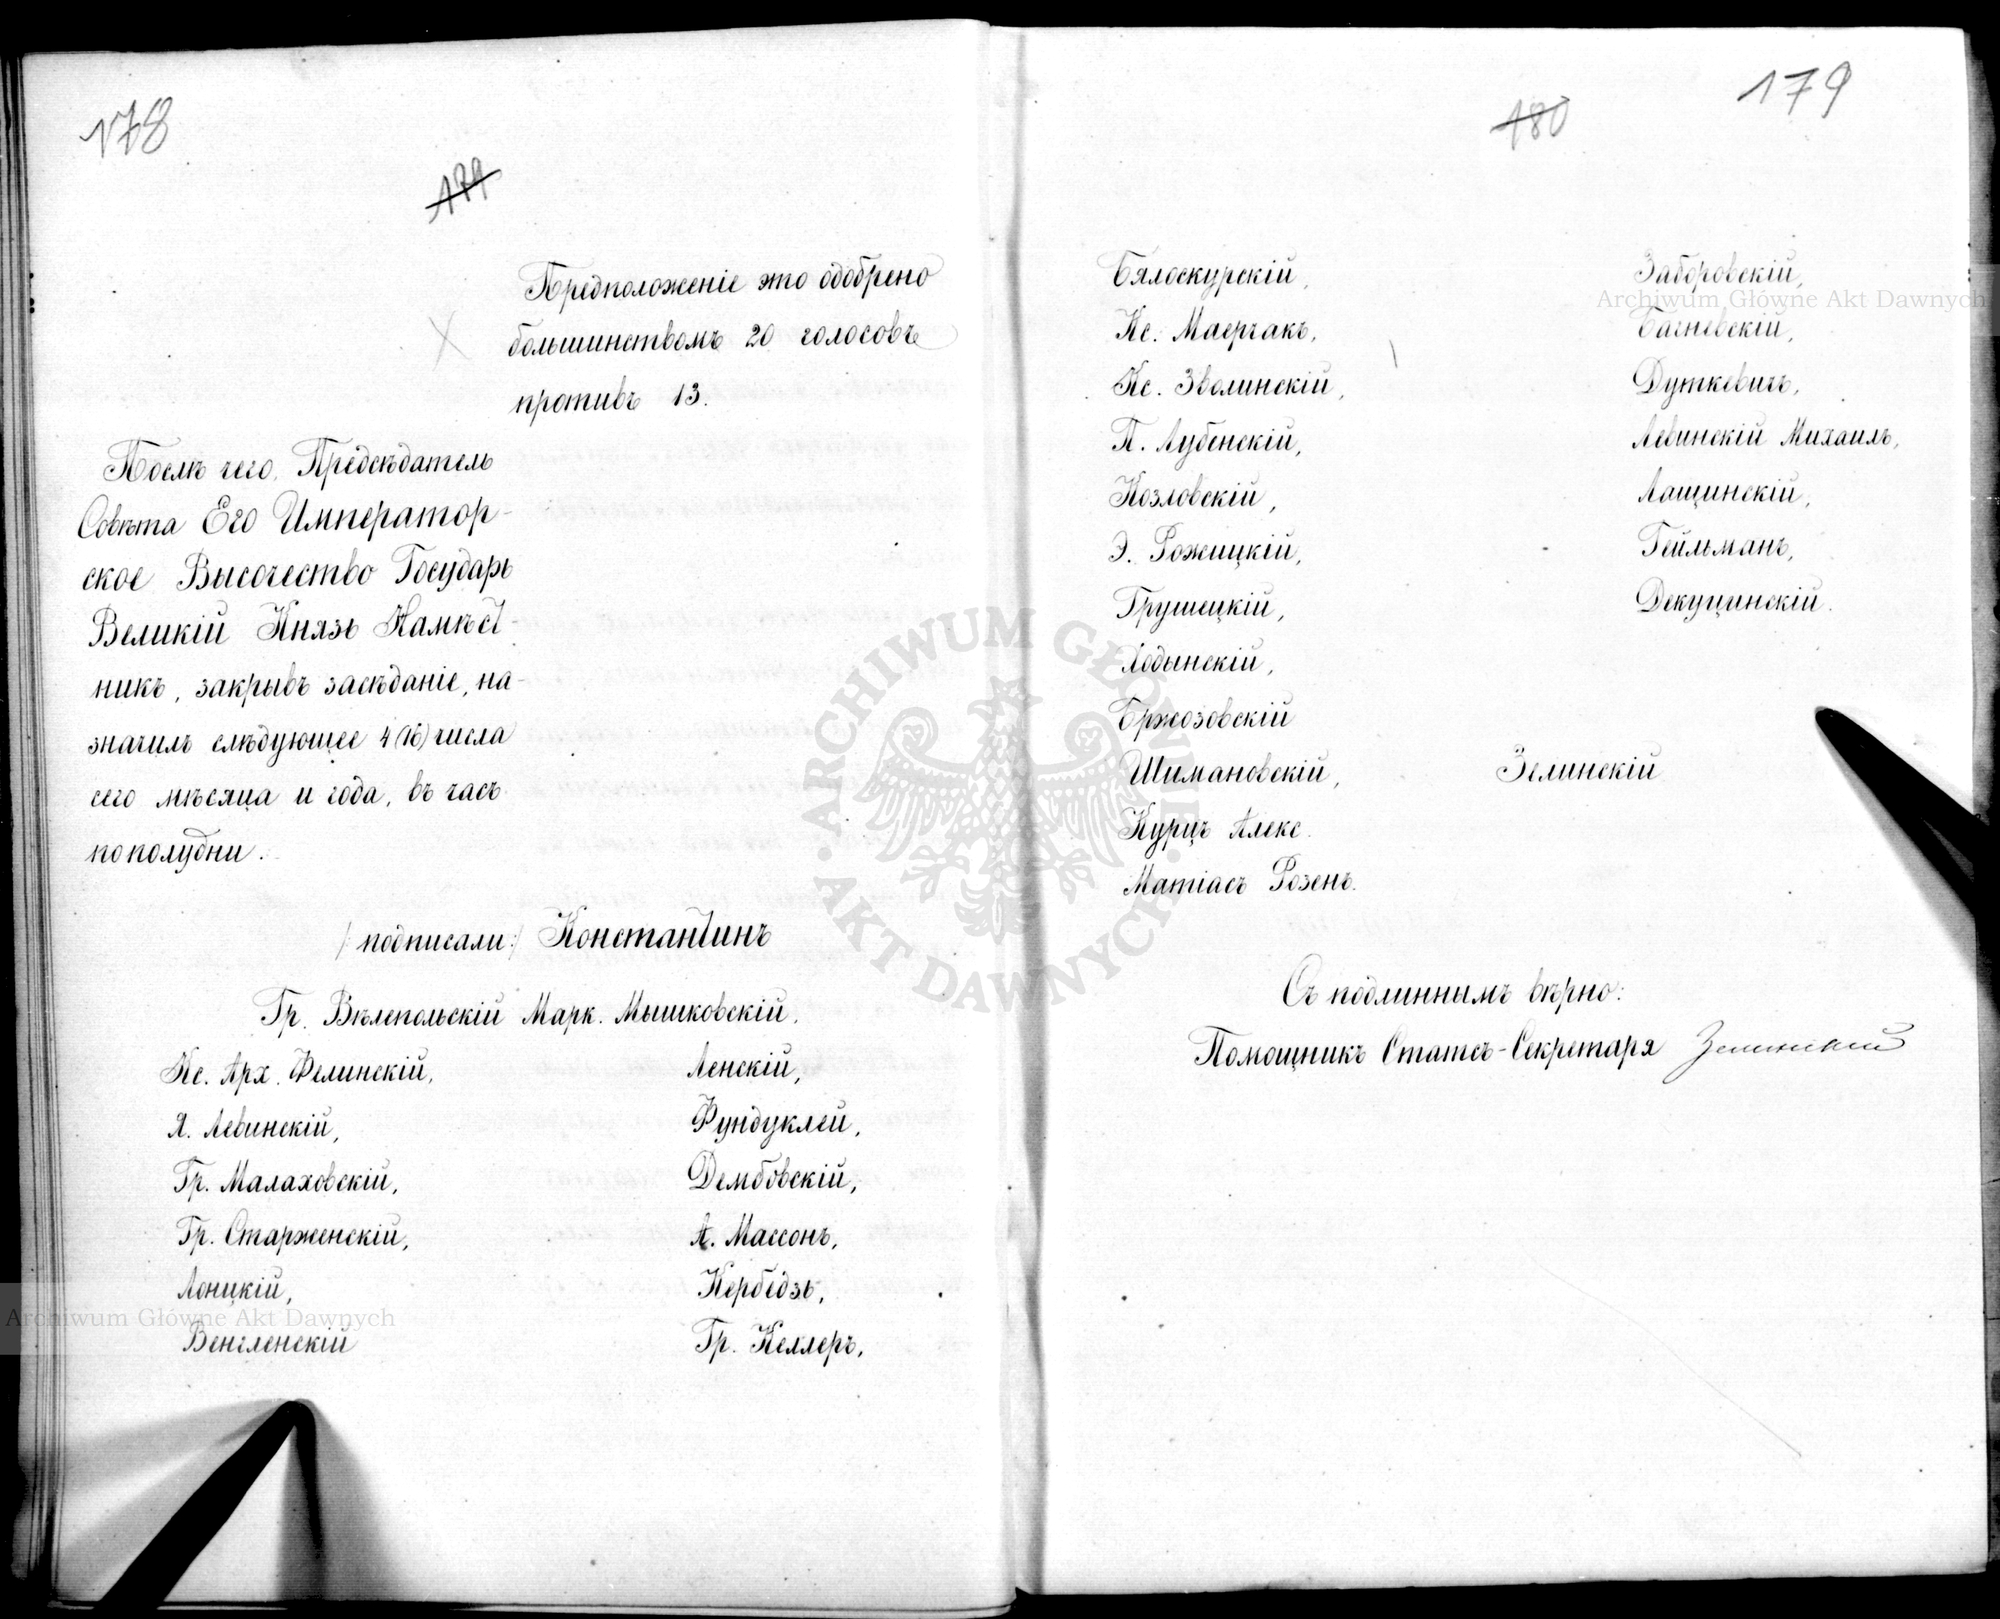 178
179
Предположеніе это одобрено
большинствомъ 20 голосовъ
противъ 13.
Послѣ чего, Предсѣдатель
Совѣта Его Император-
ское Высочество Государь
Великій Князь Намѣст-
никъ, закрывъ засѣданіе, на-
значилъ слѣдующее 4 (16) числа
сего мѣсяца и года, въ часъ
пополудни.
/подписали:/ Константинъ
Гр. Вѣлепольскій Марк. Мышковскій.
Кс. Арх. Фелинскій,
Я. Левинскій,
Гр. Малаховскій,
Гр. Старженскій,
Лонцкій,
Венгленскій
Ленскій,
Фундуклей,
Дембовскій,
А. Массонъ,
Кербедзь,
Гр. Келлеръ,
180
179
Бялоскурскій,
Кс. Маерчакъ,
Кс. Зволинскій,
П. Лубенскій,
Козловскій,
Э. Рожицкій,
Грушецкій,
Ходынскій,
Бржозовскій
Шимановскій,
Курцъ Алекс.
Матіасъ Розенъ.
Заборовскій,
Багневскій,
Дуткевичъ,
Левинскій Михаилъ,
Лащинскій,
Гейльманъ,
Декуцинскій.
Зелинскій
Съ подлиннымъ вѣрно:
Помощникъ Статсъ-Секретаря Зелинскій
Archiwum Główne Akt Dawnych
Archiwum Główne Akt Dawnych
ARCHIWUM GŁÓWNE
AKT DAWNYCH